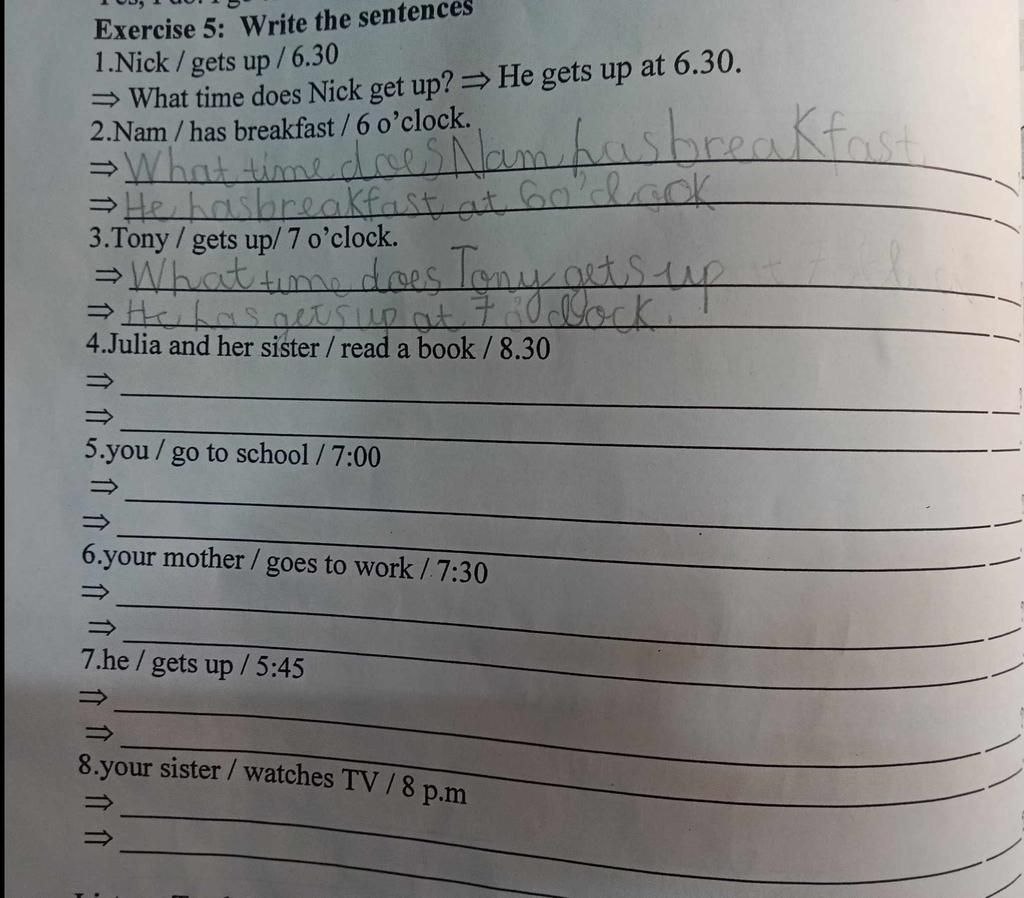 Exercise 5: Write the sentences
1.Nick / gets up / 6.30
⇒ What time does Nick get up? ⇒ He gets up at 6.30.
2.Nam / has breakfast / 6 o'clock.
⇒ What time does Nam has breakfast
⇒ He has breakfast at 6 o'clock
3.Tony / gets up/ 7 o'clock.
⇒ What time does Tony gets up
⇒ He has gets up at 7 o'clock.
4.Julia and her sister / read a book / 8.30
⇒
⇒
5.you / go to school / 7:00
⇒
⇒
6.your mother / goes to work / 7:30
⇒
⇒
7.he / gets up / 5:45
⇒
⇒
8.your sister / watches TV / 8 p.m
⇒
⇒